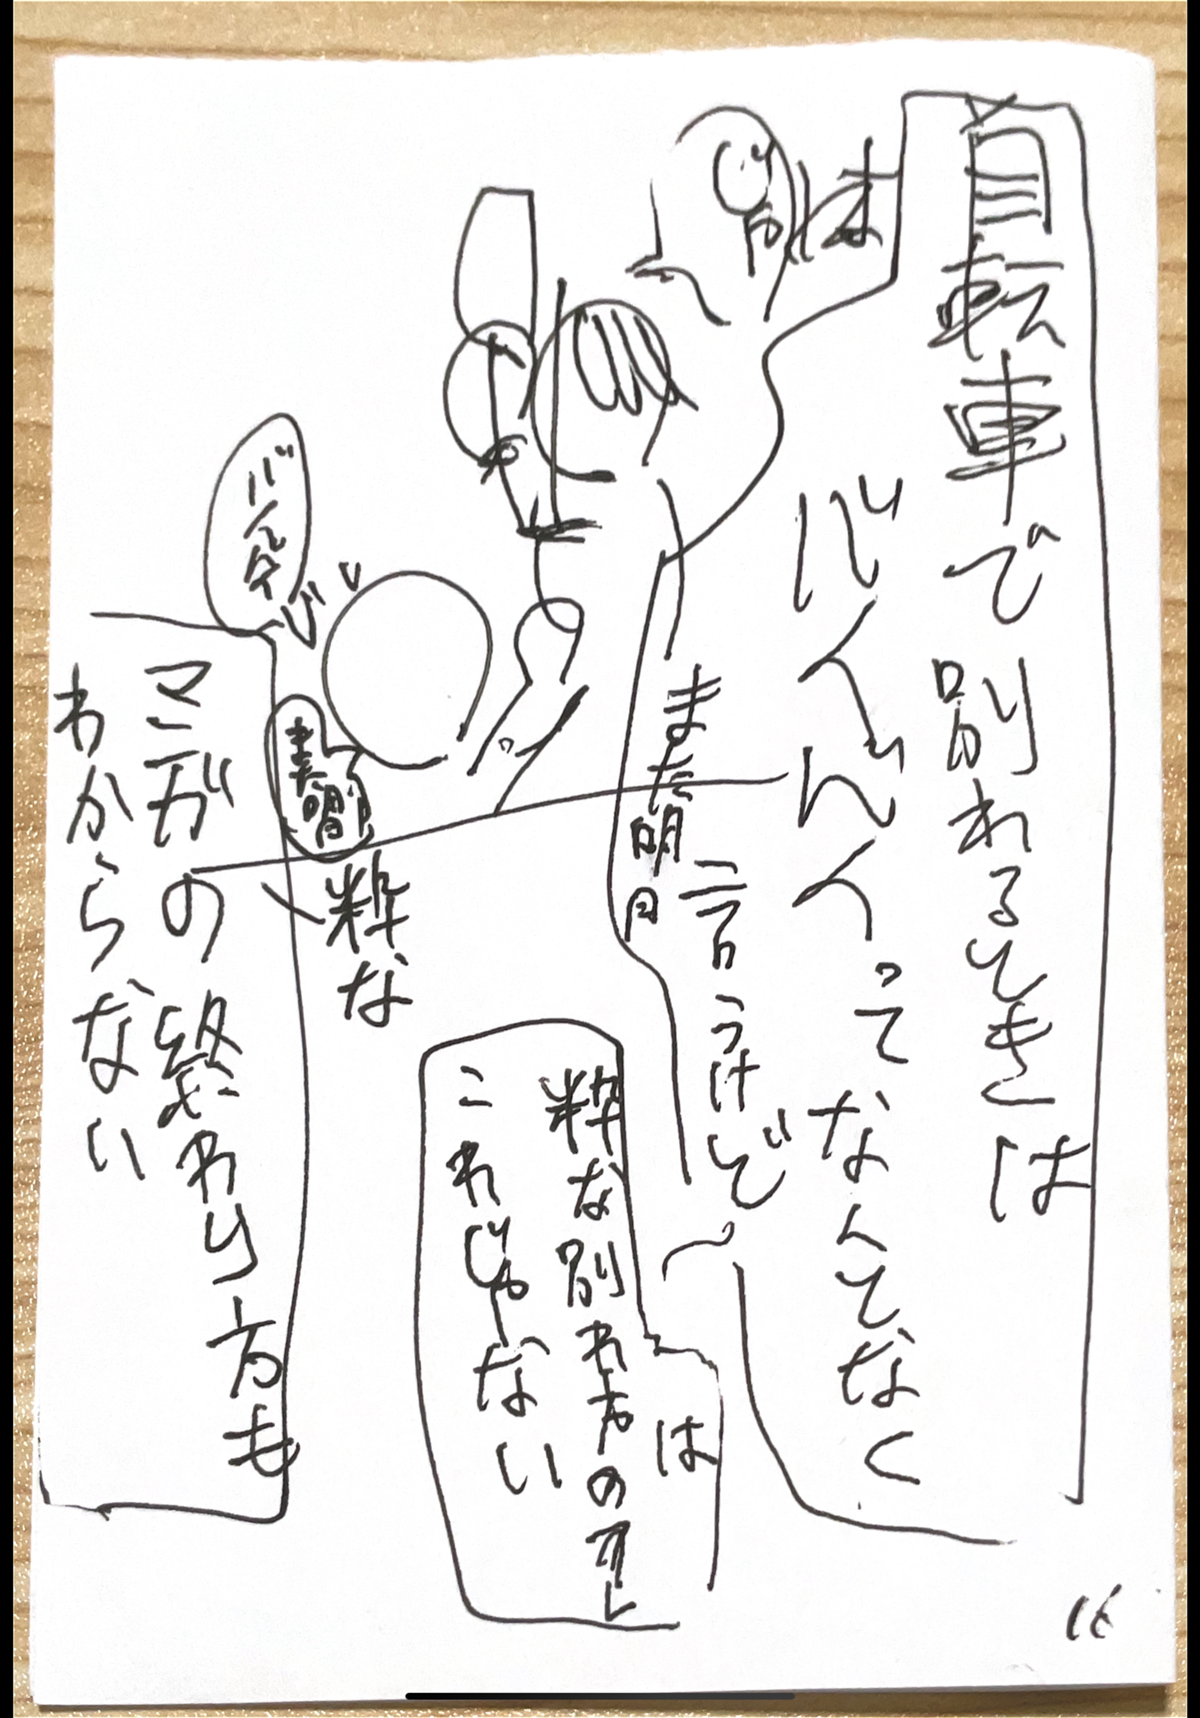 自転車で別れるときは
バイバイってなんてなく
また明日
言うけど
は
粋な別れ方の
これじゃない
粋な
また明日
バイク
マンガの終わり方も
わからない
16